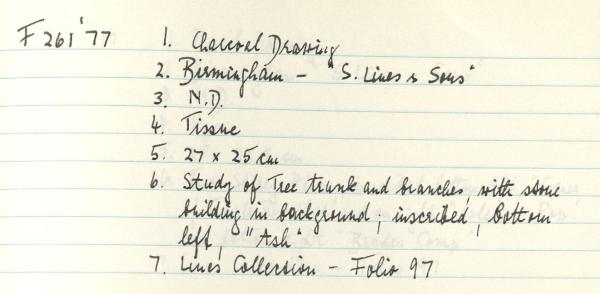 F 261 '77
1. Charcoal Drawing
2. Birmingham - "S. Lines & Sons"
3. N.D.
4. Tissue
5. 27 x 25 cm
6. Study of Tree trunk and branches, with stone
building in background; inscribed, bottom
left, "Ash"
7. Lines Collection - Folio 97